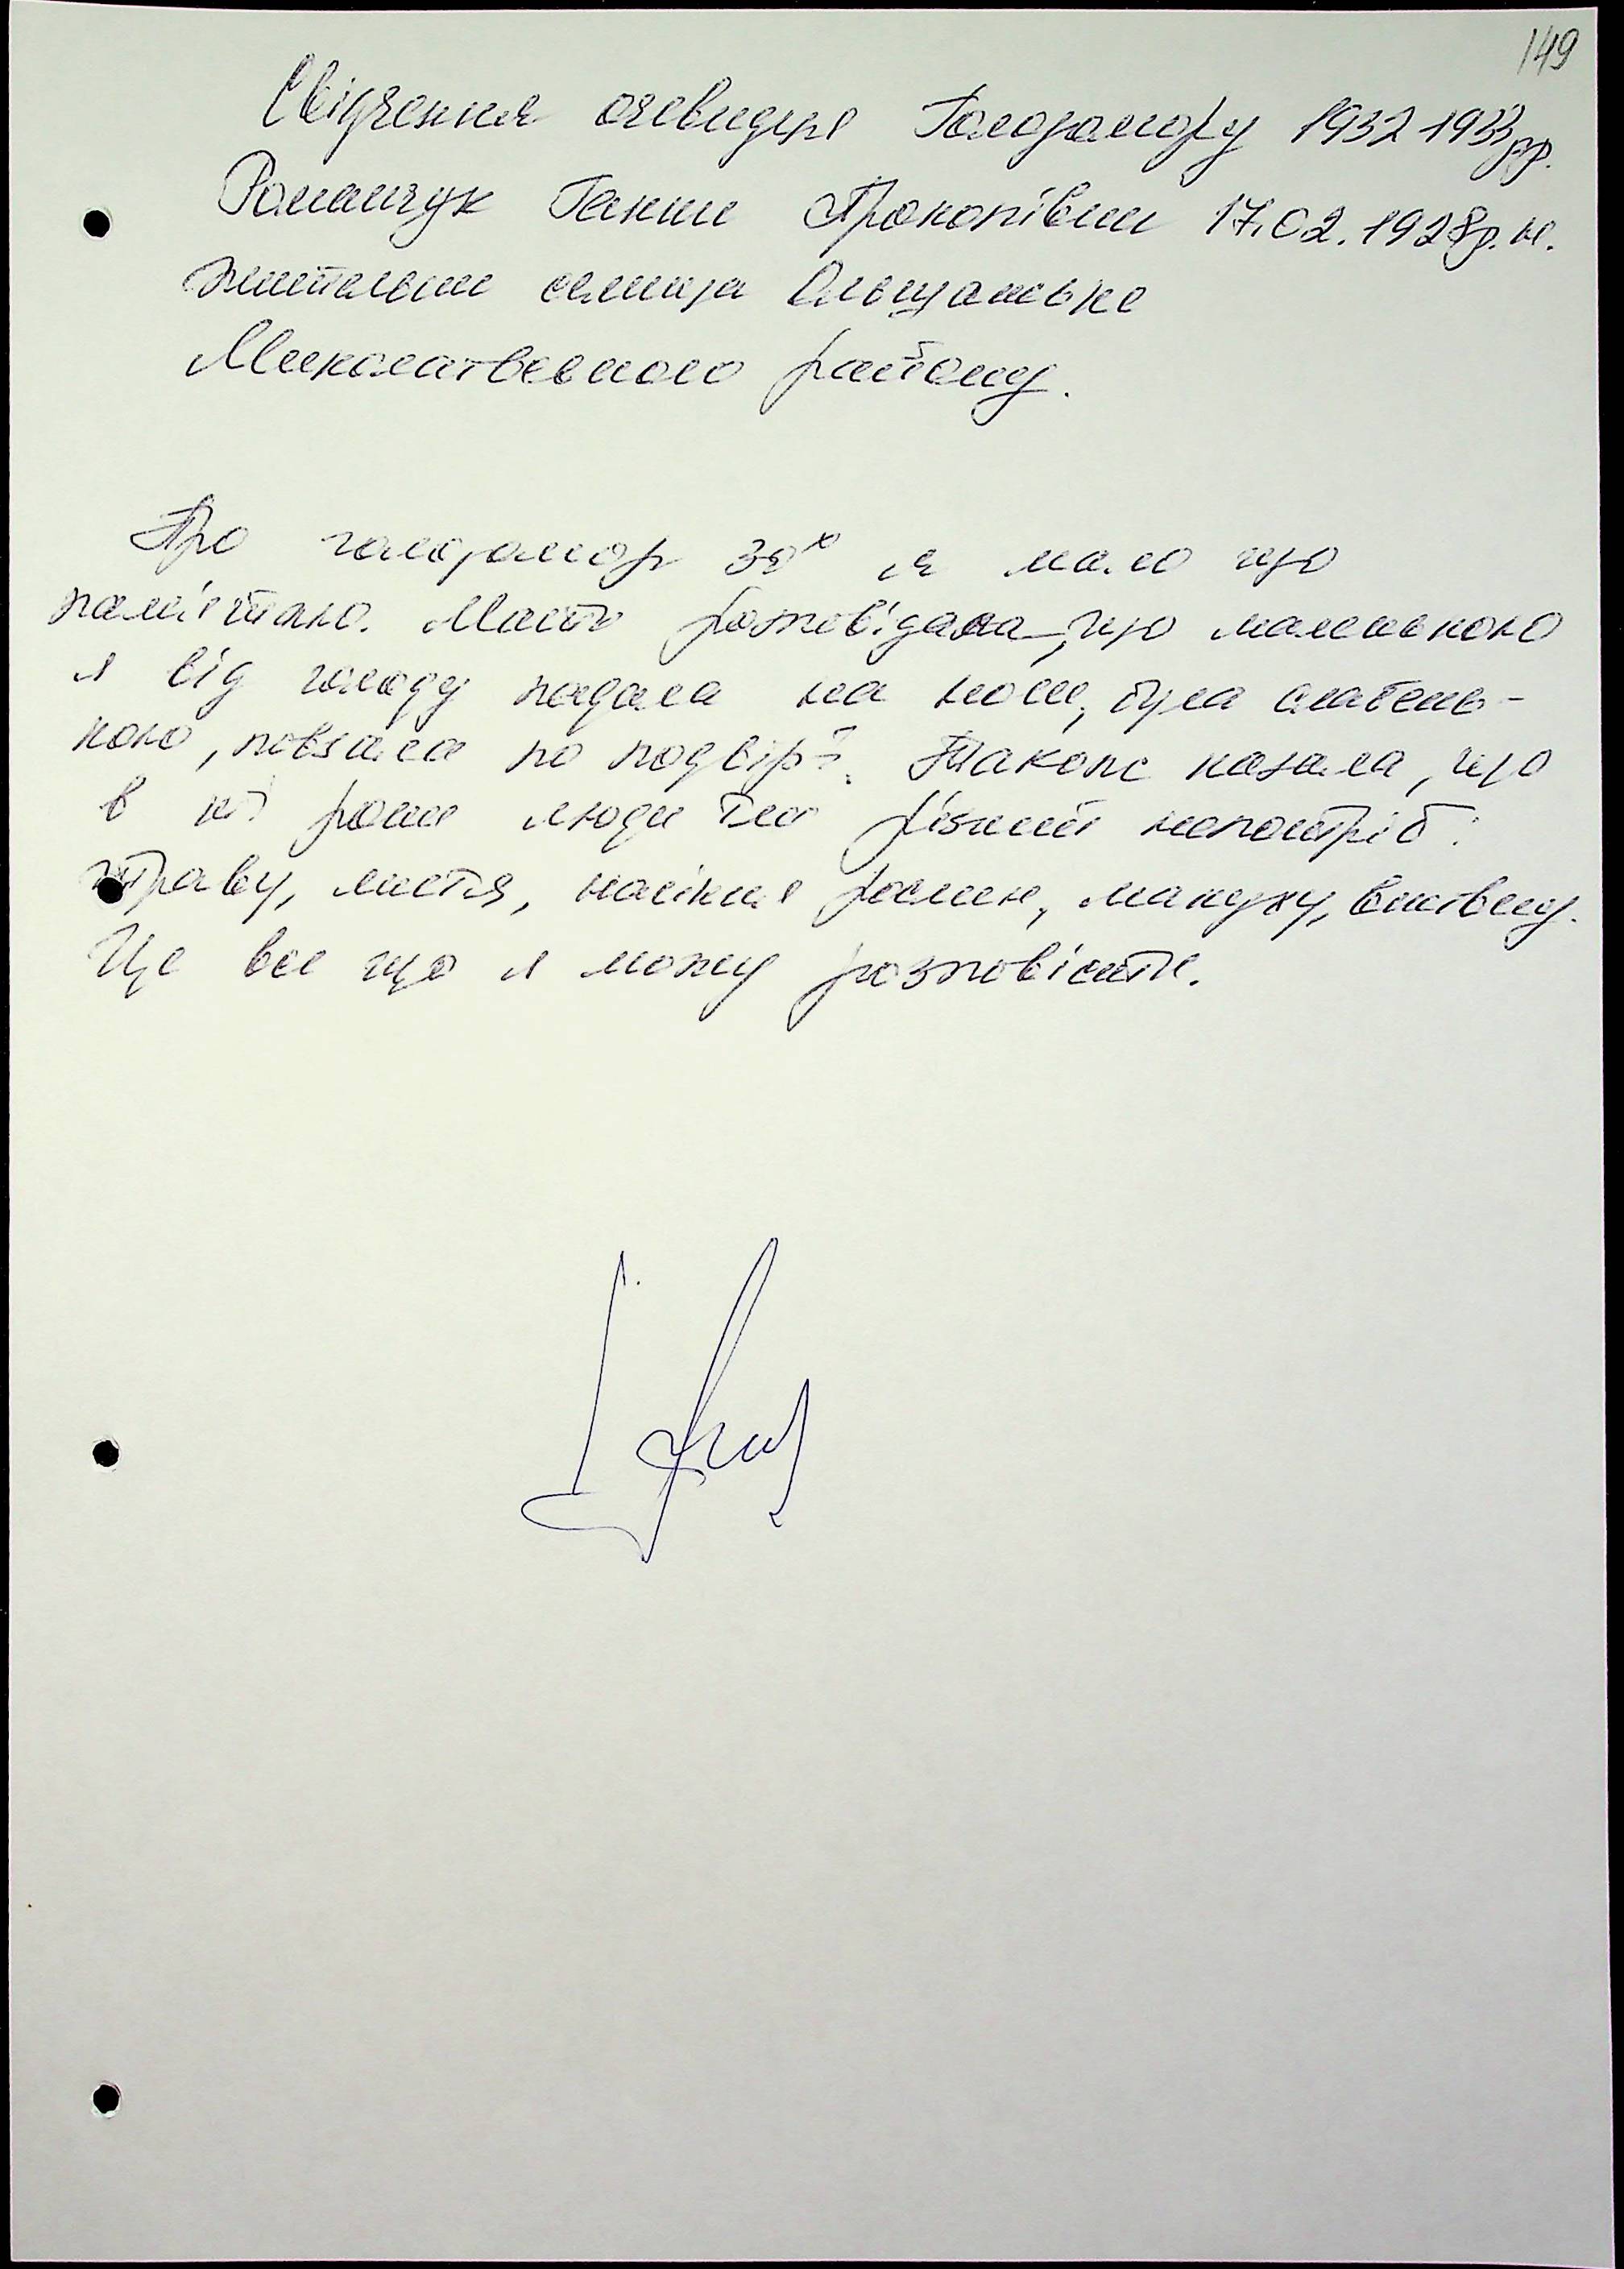 149
Свідчення очевидця Голодомору 1932-1933рр.
Романчук Ганни Прокопівни 17.02.1928р.н.
жительки селища Ольшанське
Миколаївського району.
Про голодомор 30х я мало що
пам'ятаю. Мати розповідала, що маленькою
я від голоду падала на ноги, була слабень-
кою, повзала по подвір'ї. Також казала, що
в ті роки люди їли різний непотріб:
траву, листя, насіння рослин, макуху,
Це все що я можу розповісти.